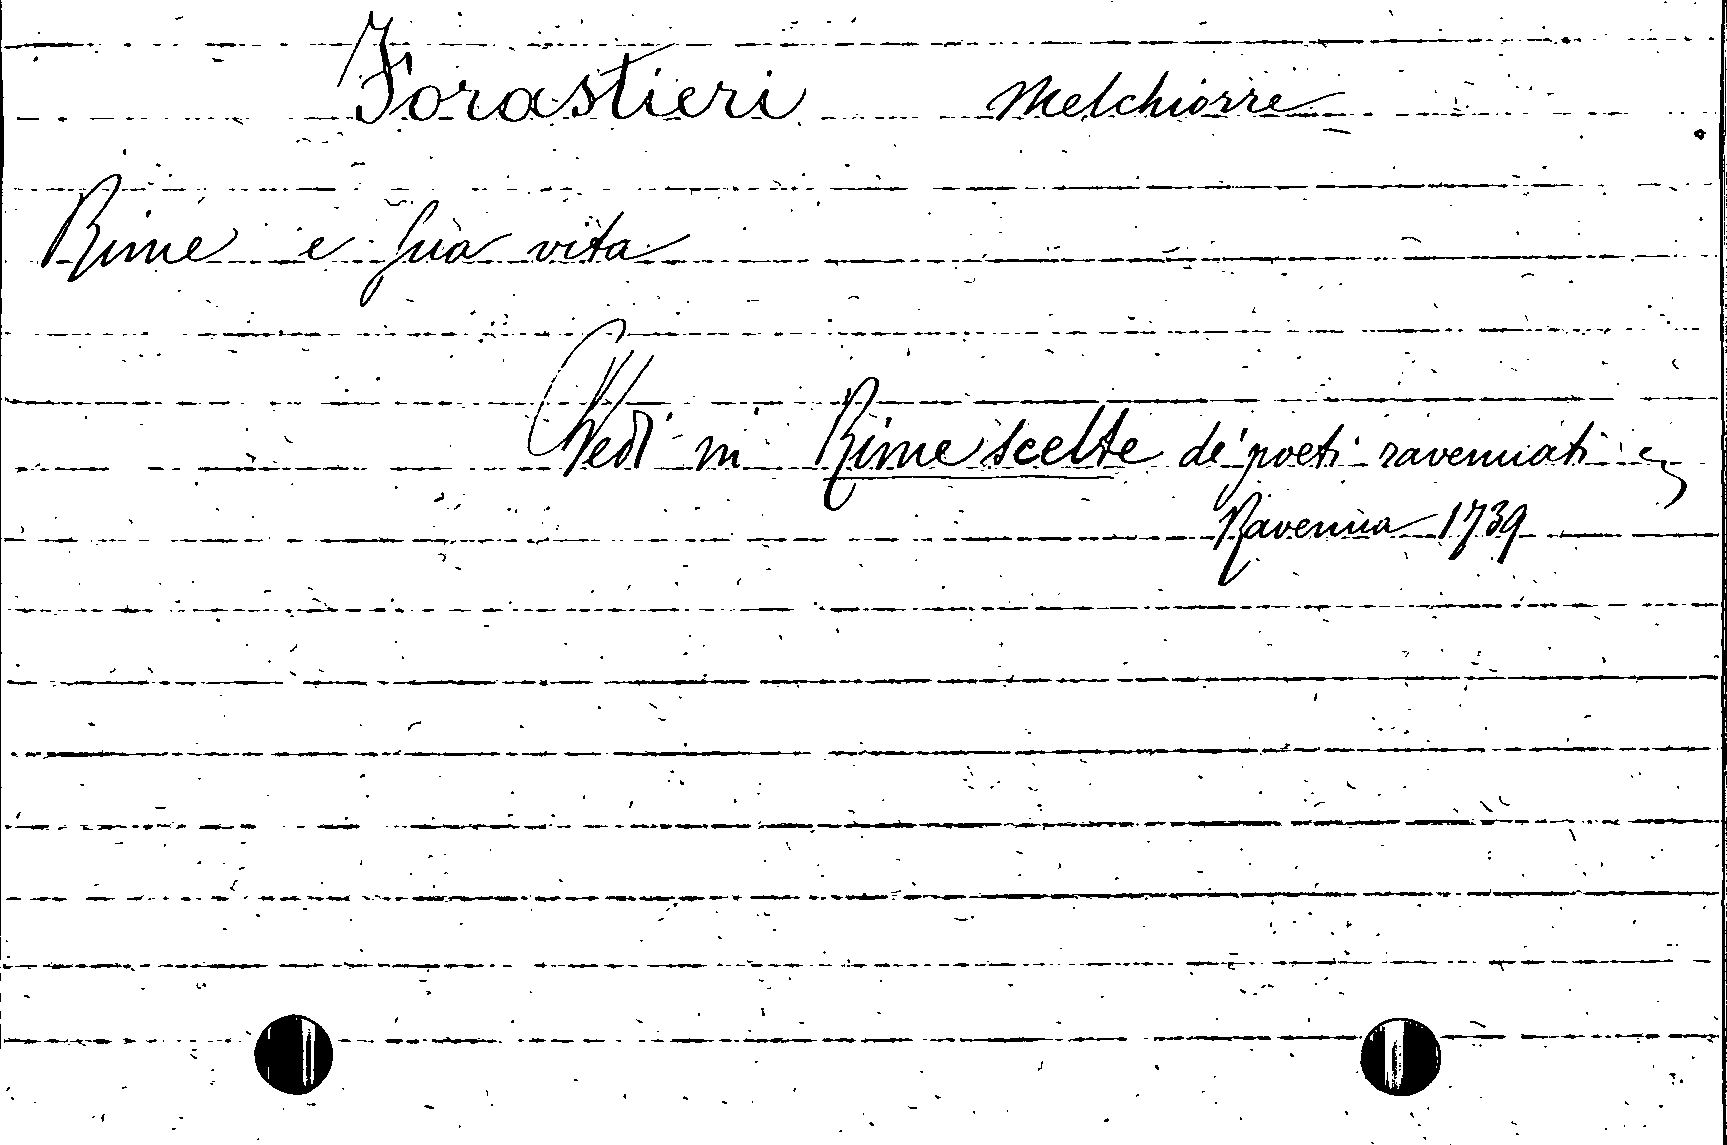 Forastieri Melchiorre
Rime e sua vita
Vedi in Rime scelte de' poeti ravennati
Ravenna 1739